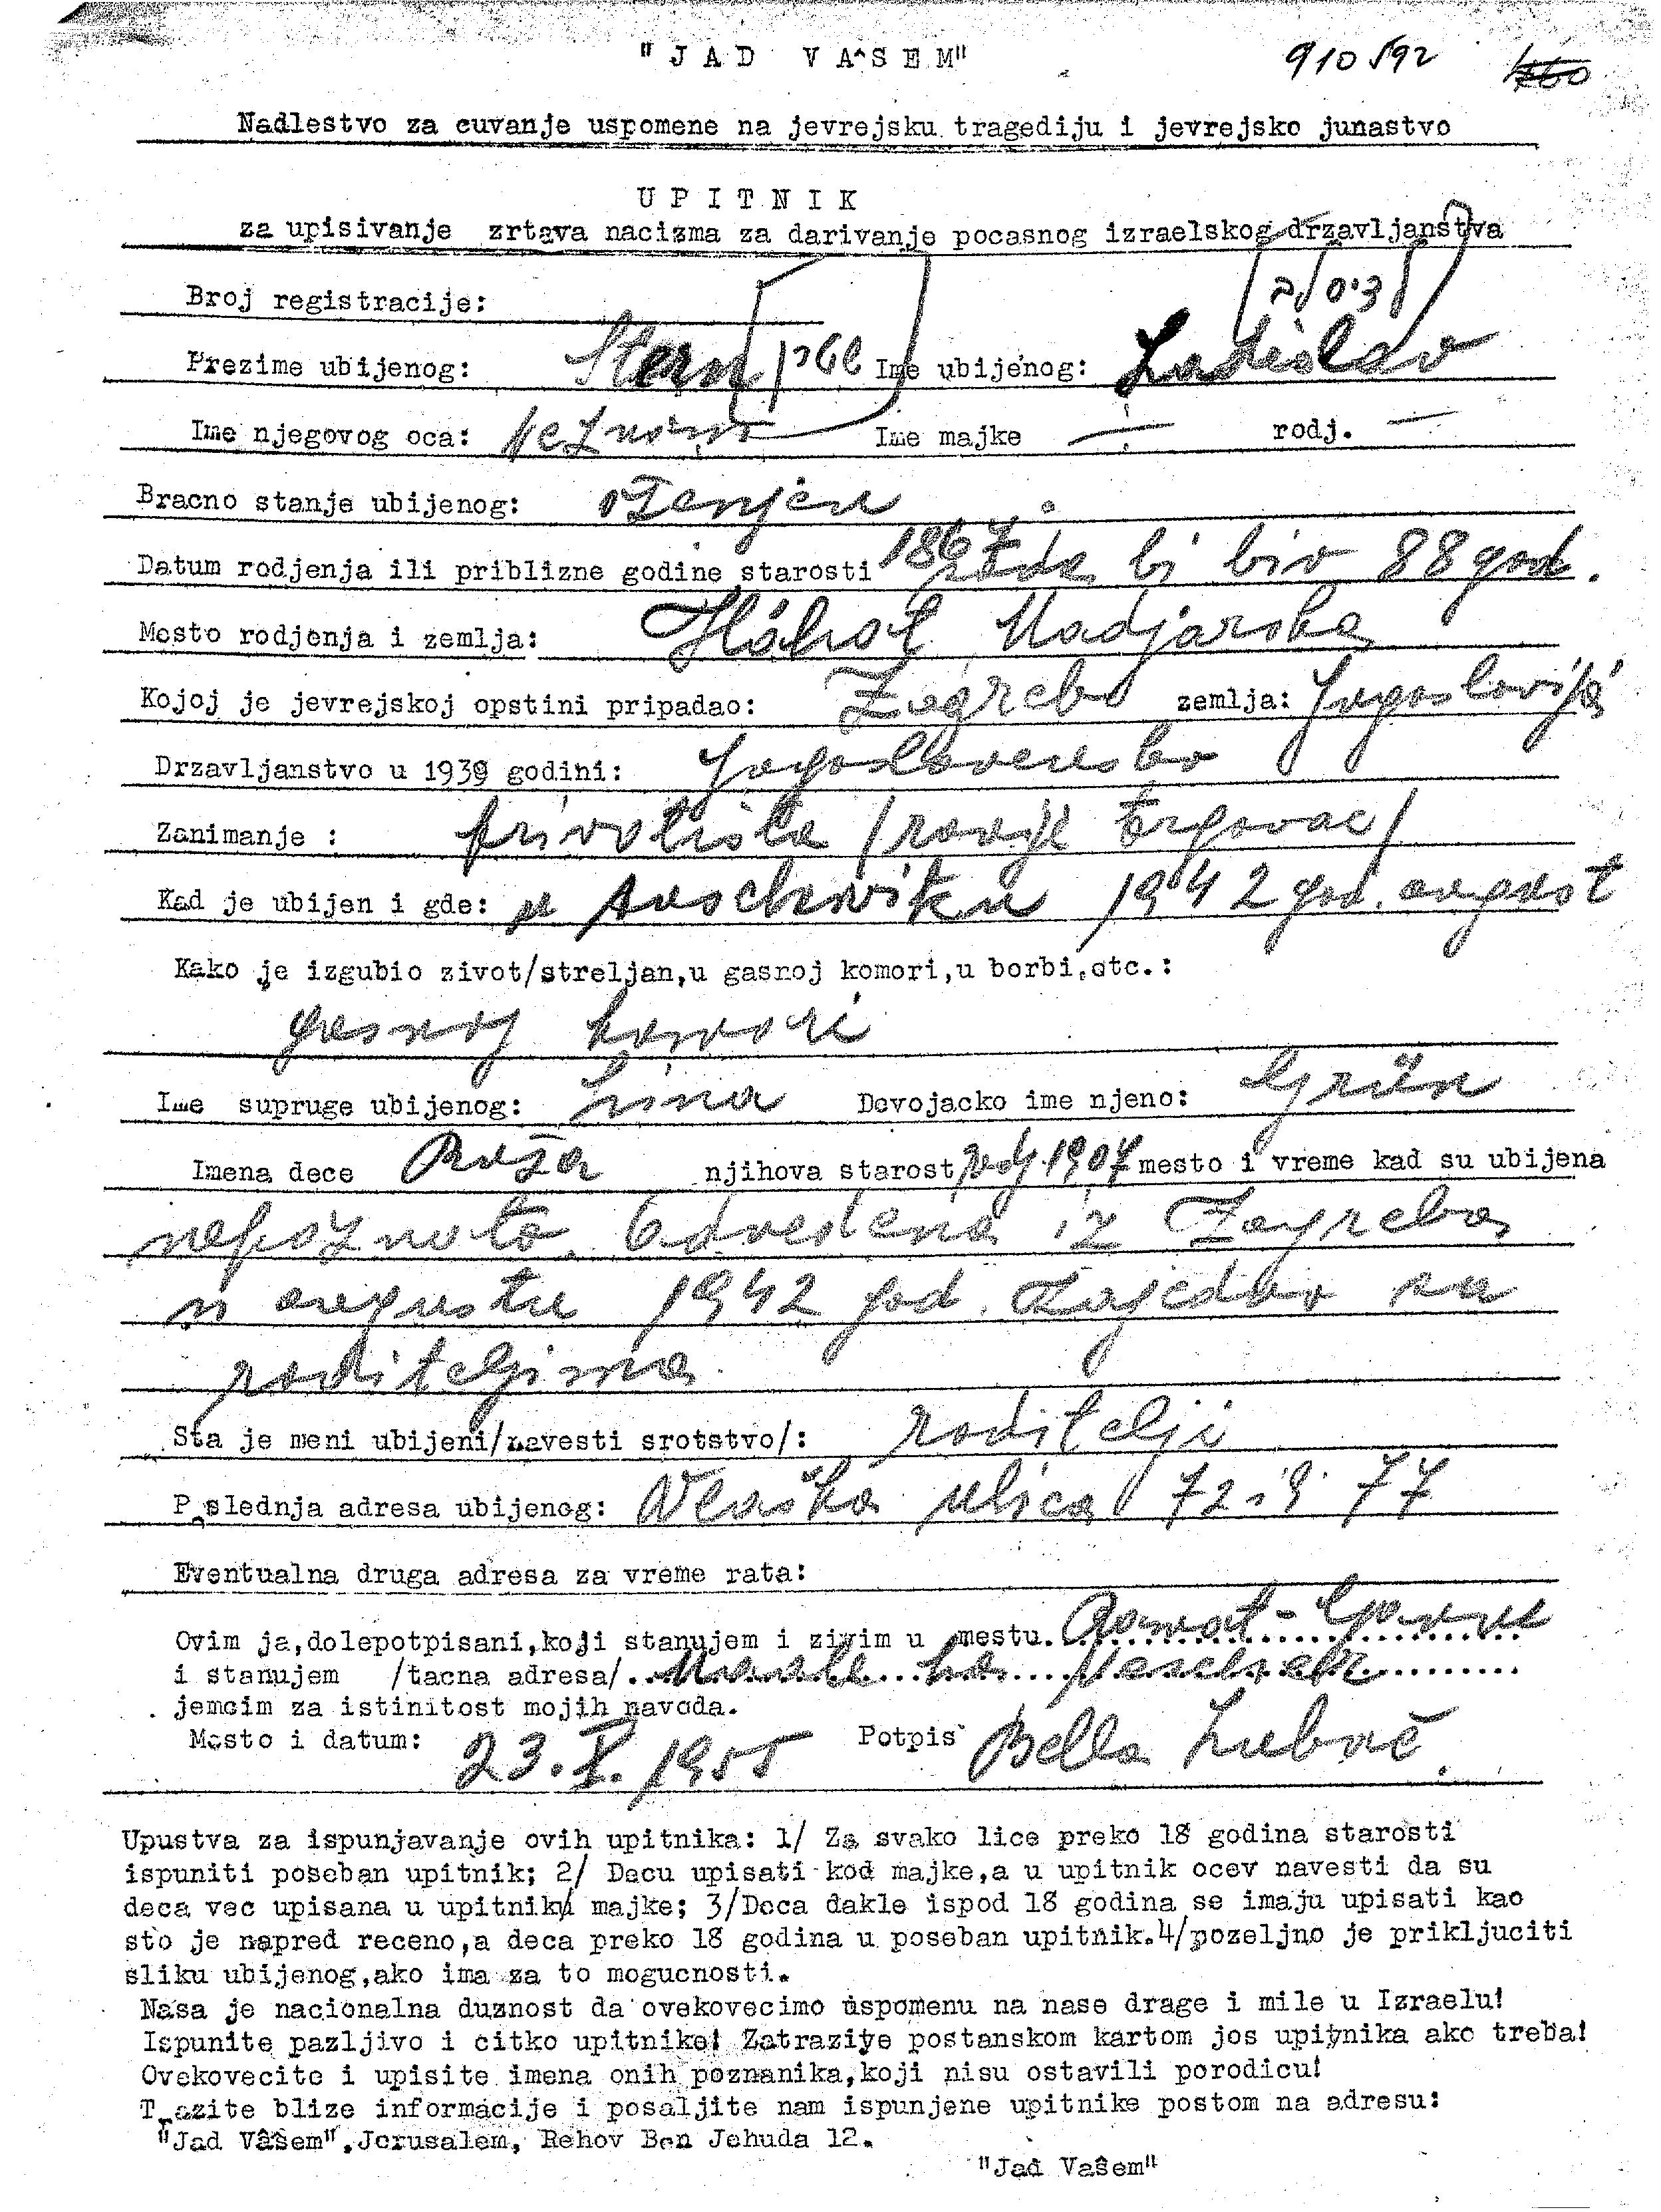 "JAD VAŜEM" 910592
Nadlestvo za cuvanje uspomene na jevrejsku tragediju i jevrejsko junastvo
UPITNIK
za upisivanje zrtava nacizma za darivanje pocasnog izraelskog drzavljanstva
Broj registracije:
Prezime ubijenog: Stern שטרן Ime ubijenog: Ladislav
Ime njegovog oca: Ime majke — rodj. —
Bracno stanje ubijenog: oženjen
Datum rodjenja ili priblizne godine starosti 1867 da bi bio 88 god.
Mesto rodjenja i zemlja: Madjarska
Kojoj je jevrejskoj opstini pripadao: Zagreb zemlja: Jugoslavija
Drzavljanstvo u 1939 godini: Jugoslavensko
Zanimanje : privatista /ranije trgovac/
Kad je ubijen i gde: u Auschwitzu 1942 god. avgust
Kako je izgubio zivot/streljan,u gasnoj komori,u borbi,etc.:
gasnoj komori
Ime supruge ubijenog: Devojacko ime njeno: Grün
Imena dece Roža njihova starost rodj. 1907 mesto i vreme kad su ubijena
nepoznato. Odvedena iz Zagreba
u avgustu 1942 god. zajedno sa
roditeljima
Sta je meni ubijeni/navesti srotstvo/: roditelji
Poslednja adresa ubijenog: Vlaška ulica 72 ili 77
Eventualna druga adresa za vreme rata:
Ovim ja,dolepotpisani,koji stanujem i zivim u mestu. Ramat-
i stanujem /tacna adresa/.
jemcim za istinitost mojih navoda.
Mesto i datum: 23.X.1955 Potpis Bella
Upustva za ispunjavanje ovih upitnika: 1/ Za svako lice preko 18 godina starosti
ispuniti poseban upitnik; 2/ Decu upisati kod majke,a u upitnik ocev navesti da su
deca vec upisana u upitniku majke; 3/Deca dakle ispod 18 godina se imaju upisati kao
sto je napred receno,a deca preko 18 godina u poseban upitnik.4/pozeljno je prikljuciti
sliku ubijenog,ako ima za to mogucnosti.
Nasa je nacionalna duznost da ovekovecimo uspomenu na nase drage i mile u Izraelu!
Ispunite pazljivo i citko upitnike! Zatrazite postanskom kartom jos upitnika ako treba!
Ovekovecite i upisite imena onih poznanika,koji nisu ostavili porodicu!
Trazite blize informacije i posaljite nam ispunjene upitnike postom na adresu:
"Jad Vaŝem",Jerusalem, Rehov Ben Jehuda 12.
"Jad Vaŝem"